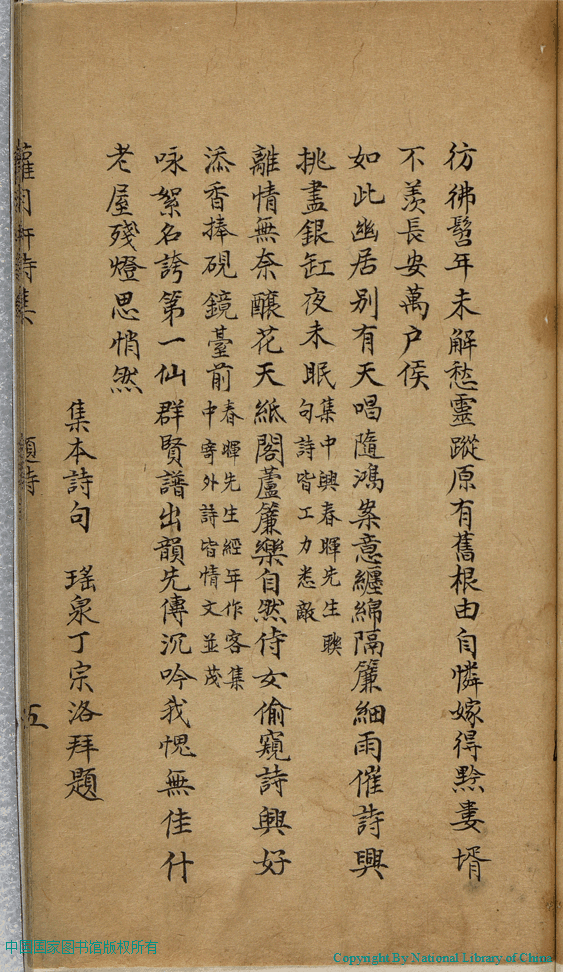 彷彿髫年未解愁靈蹤原有舊根由自憐嫁得黔婁壻
不羨長安萬户侯
如此幽居别有天唱隨鴻案意纏綿隔簾細雨催詩興
挑盡銀缸夜未眠集中與春暉先生聯句詩皆工力悉敵
離情無奈釀花天紙閣蘆簾樂自然侍女偷窺詩興好
添香捧硯鏡臺前春暉先生經年作客集中寄外詩皆情文並茂
咏絮名誇第一仙群賢譜出韻先傳沉吟我愧無佳什
老屋殘燈思悄然
集本詩句 瑤泉丁宗洛拜題
詩集 題詩 五
中国国家图书馆版权所有
Copyright By National Library of China